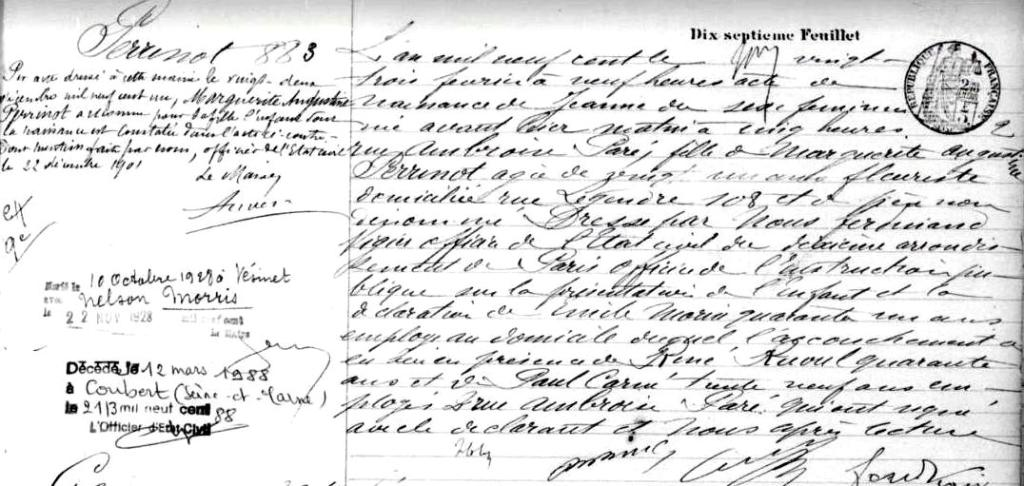 Dix septieme Feuillet
Perrinot 883
Par acte dressé à cette mairie le vingt-deux
décembre mil neuf cent un, Marguerite Augustine
Perrinot a reconnu pour sa fille l'enfant dont
la naissance est constatée dans l'acte ci-contre
Dont mention faite par nous, officier de l'Etat civil
le 22 décembre 1901
Le Maire,
Marié le 10 Octobre 1928 à Vésinet
avec Nelson Morris
le 22 NOV 1928 mil neuf cent
Le Maire
Décédée le 12 mars 1988
à Coubert (Seine-et-Marne)
le 21/3 mil neuf cent 88
L'Officier d'Etat Civil
L'an mil neuf cent le vingt-
trois février à neuf heures acte de
naissance de Jeanne du sexe féminin
née avant hier matin à cinq heures, 2
rue Ambroise Paré, fille de Marguerite Augustine
Perrinot agée de vingt un ans fleuriste
domiciliée rue Legendre 108 et de père non
dénommé Dressé par Nous Ferdinand
officier de l'Etat civil du dixième arrondis-
sement de Paris officier de l'instruction pu-
blique sur la présentation de l'enfant et la
déclaration de Emile Morin quarante un ans
employé au domicile duquel l'accouchement a
eu lieu en présence de René Raoul quarante
ans et de Paul Carné trente neuf ans em-
ployés 2 rue Ambroise Paré qui ont signé
avec le déclarant et Nous après lecture
RÉPUBLIQUE FRANÇAISE